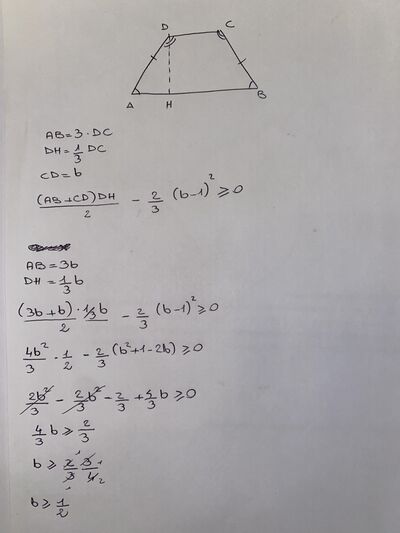 D C
A H B
AB = 3 · DC
DH = 1/3 DC
CD = b
(AB + CD) DH / 2 - 2/3 (b-1)² ≥ 0
AB = 3b
DH = 1/3 b
(3b + b) · 1/3 b / 2 - 2/3 (b-1)² ≥ 0
4b²/3 · 1/2 - 2/3 (b² + 1 - 2b) ≥ 0
2b²/3 - 2/3 b² - 2/3 + 4/3 b ≥ 0
4/3 b ≥ 2/3
b ≥ 2/3 · 3/4
b ≥ 1/2